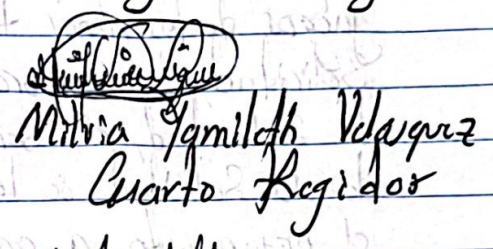 Milvia Yamileth Velasquez
Cuarto Regidor